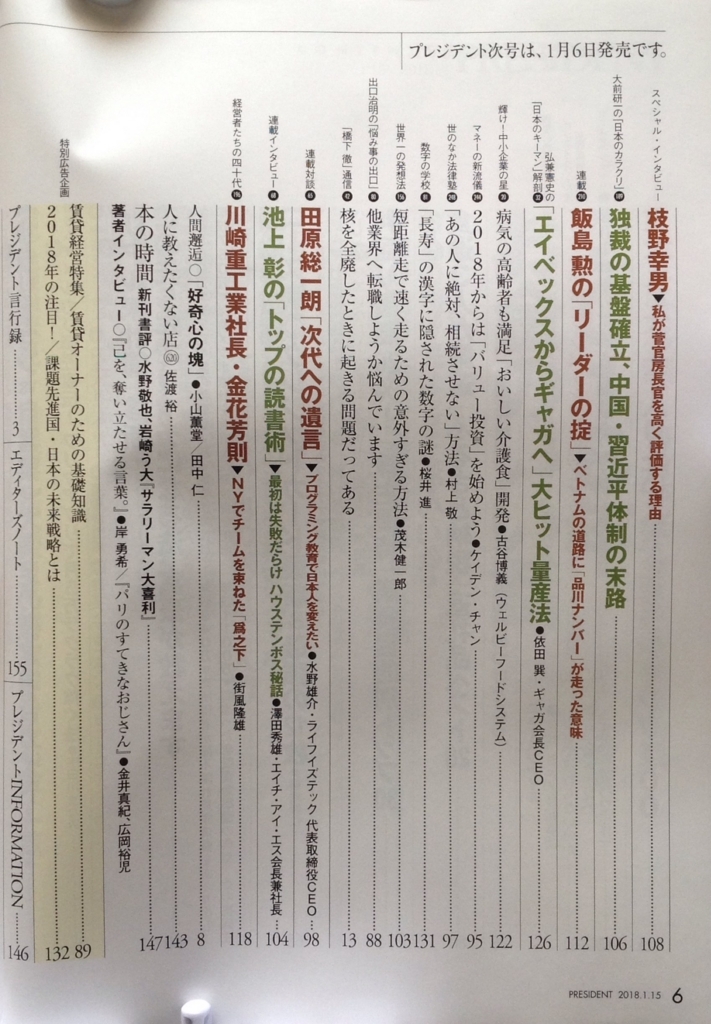 プレジデント次号は、1月6日発売です。
スペシャル・インタビュー 枝野幸男▼私が菅官房長官を高く評価する理由 108
大前研一の「日本のカラクリ」 独裁の基盤確立、中国・習近平体制の末路 106
連載 飯島 勲の「リーダーの掟」▼ベトナムの道路に「品川ナンバー」が走った意味 112
弘兼憲史の「日本のキーマン」解剖 「エイベックスからギャガへ」大ヒット量産法●依田 巽・ギャガ会長CEO 126
輝け!中小企業の星 病気の高齢者も満足「おいしい介護食」開発●古谷博義(ウェルビーフードシステム) 122
マネーの新流儀 2018年からは「バリュー投資」を始めよう●ケイデン・チャン 95
世のなか法律塾 「あの人に絶対、相続させない」方法●村上 敬 97
数字の学校 「長寿」の漢字に隠された数字の謎●桜井 進 131
世界一の発想法 短距離走で速く走るための意外すぎる方法●茂木健一郎 103
出口治明の「悩み事の出口」 他業界へ転職しようか悩んでいます 88
「橋下 徹」通信 核を全廃したときに起きる問題だってある 13
連載対談 田原総一朗「次代への遺言」▼プログラミング教育で日本人を変えたい●水野雄介・ライフイズテック 代表取締役CEO 98
連載インタビュー 池上 彰の「トップの読書術」▼最初は失敗だらけ ハウステンボス秘話●澤田秀雄・エイチ・アイ・エス会長兼社長 104
経営者たちの四十代 川崎重工業社長・金花芳則▼NYでチームを束ねた「爲之下」●街風隆雄 118
人間邂逅○「好奇心の塊」●小山薫堂/田中 仁 8
人に教えたくない店 佐渡 裕 143
本の時間 新刊書評○水野敬也、岩崎う大『サラリーマン大喜利』 147
著者インタビュー○『己を、奪い立たせる言葉。』●岸 勇希/『パリのすてきなおじさん』●金井真紀、広岡裕児
特別広告企画 賃貸経営特集/賃貸オーナーのための基礎知識 89
2018年の注目!/課題先進国・日本の未来戦略とは 132
プレジデント言行録 3 エディターズノート 155 プレジデントINFORMATION 146
PRESIDENT 2018.1.15 6